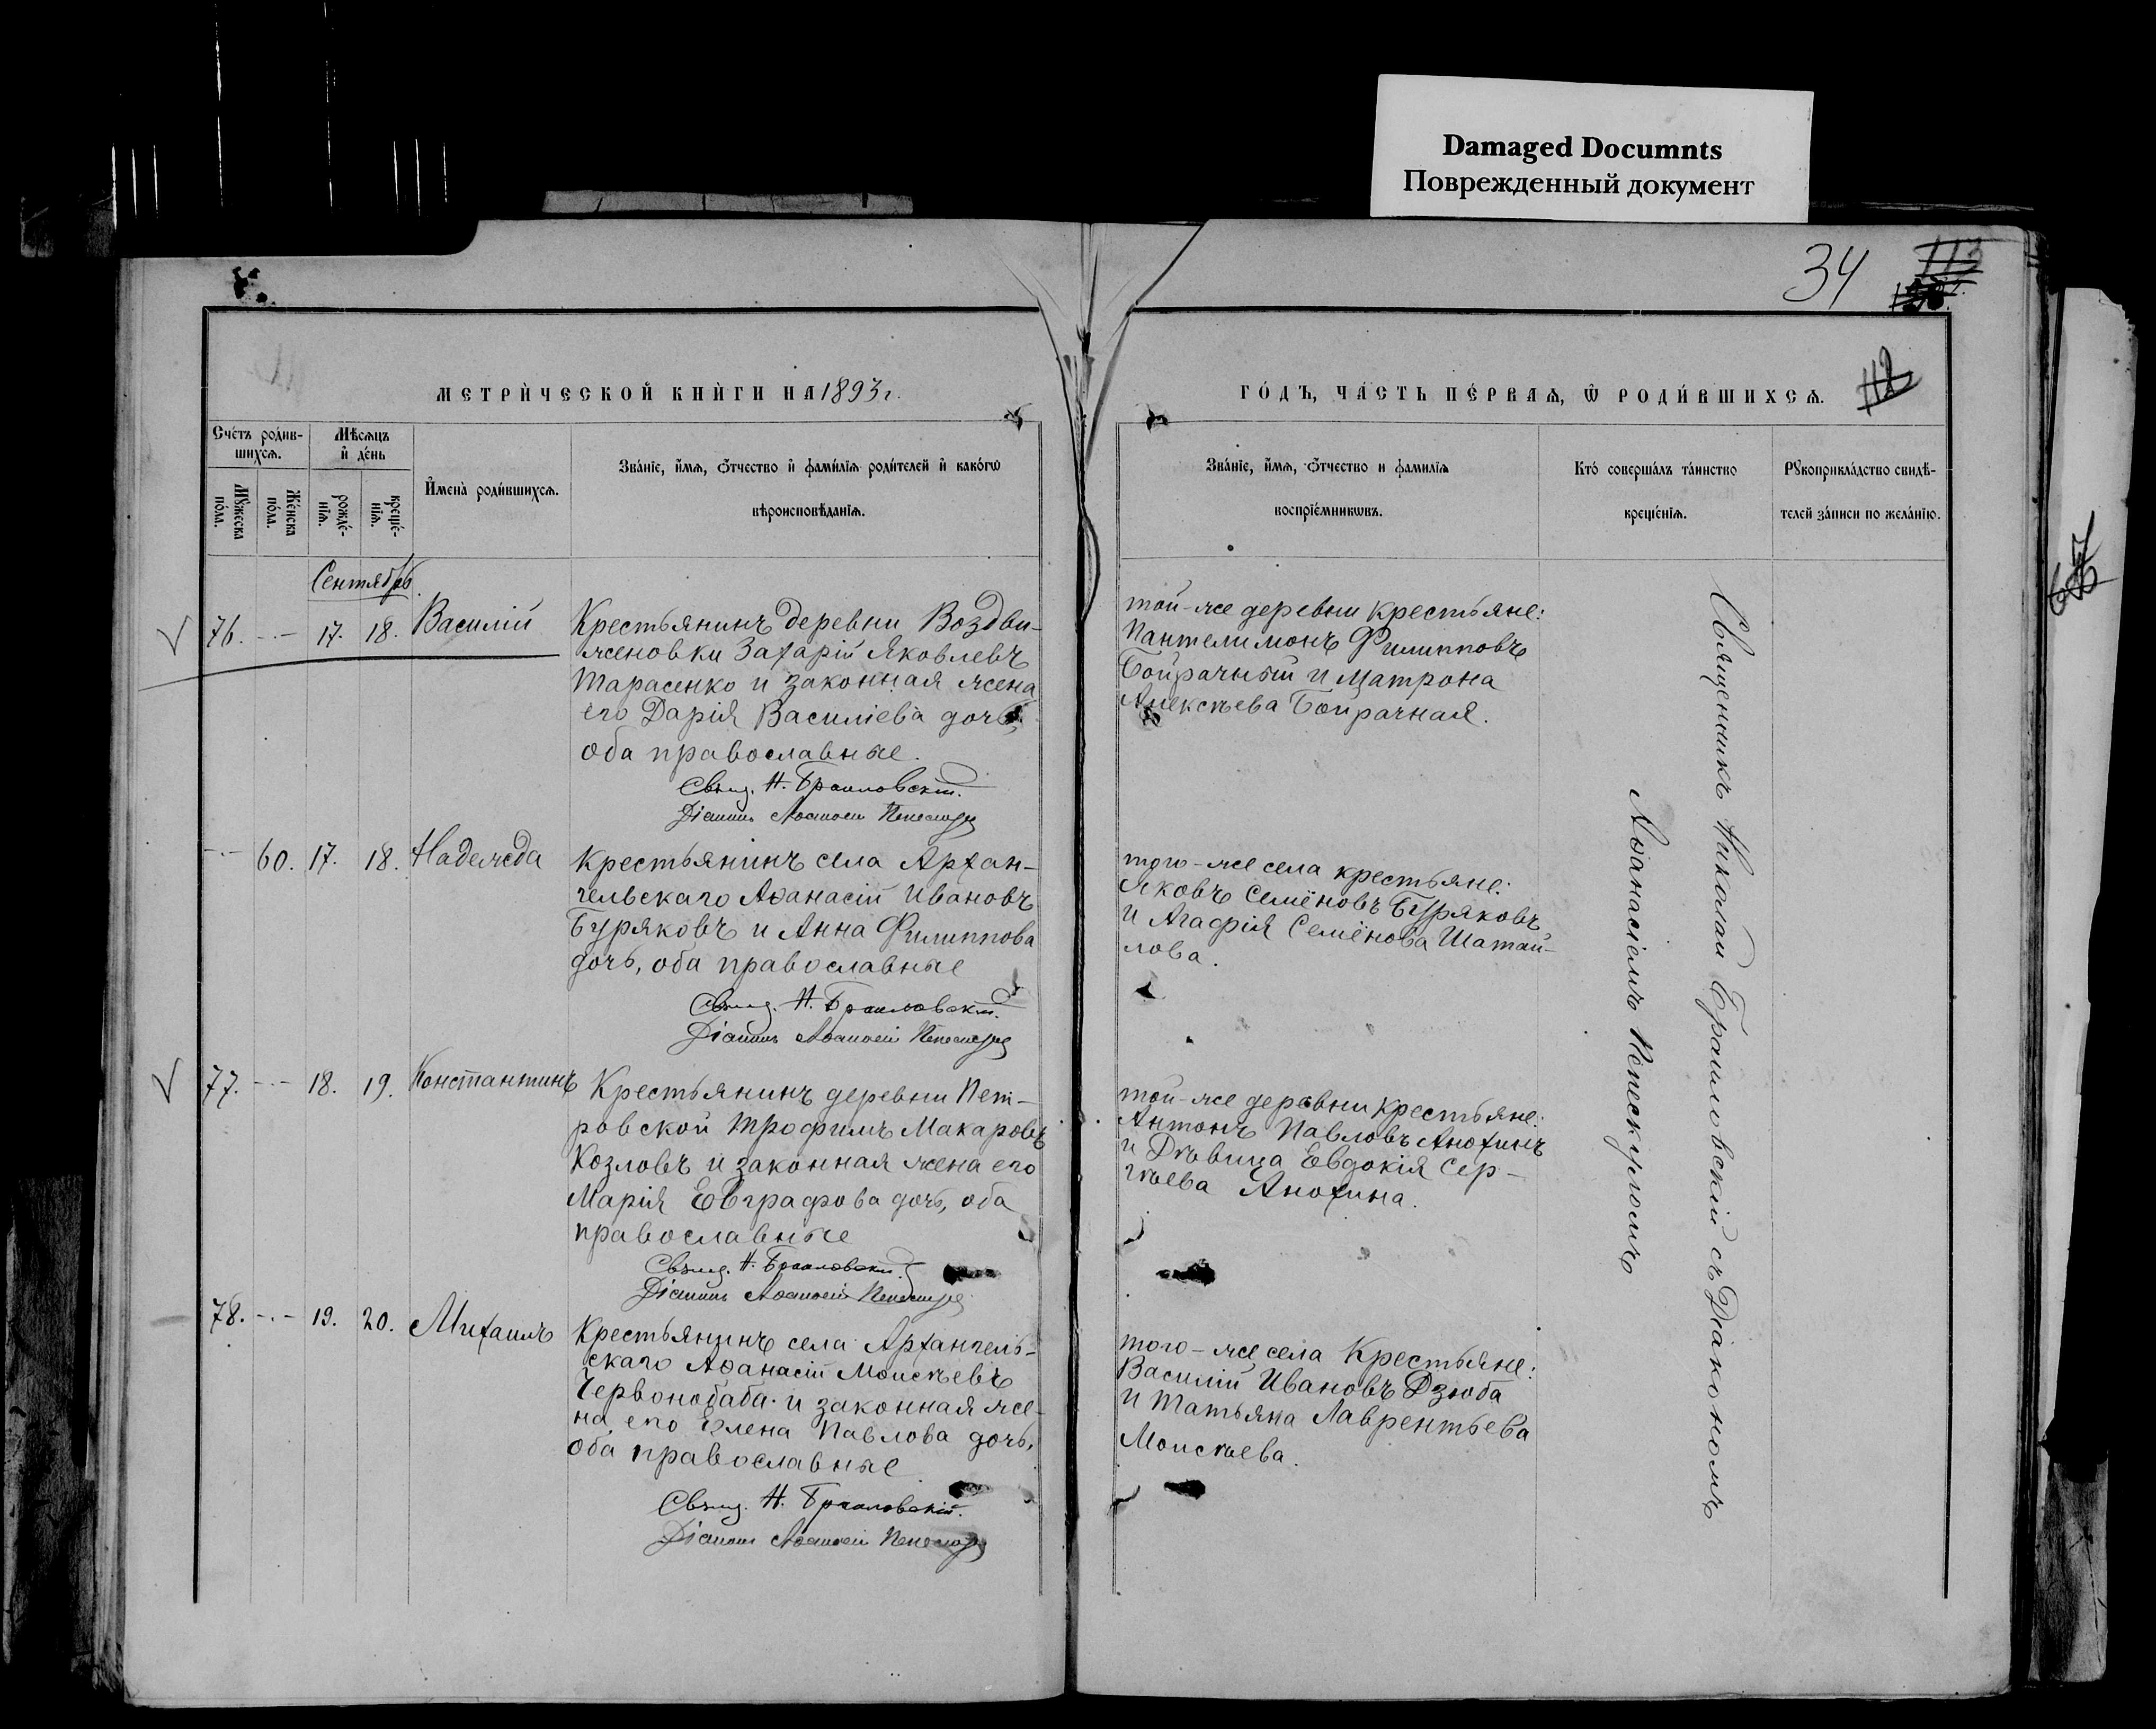 Damaged Documnts
Поврежденный документ
34
112
МЕТРИ́ЧЕСКОЙ КНИ́ГИ НА 1893 г.
ГО́ДЪ, ЧА́СТЬ ПЕ́РВАѦ, Ѿ РОДИ́ВШИХСѦ.
Сче́тъ роди́в-
шихсѧ.
Мѣ́сѧцъ
и҆ де́нь
Мꙋ́жеска по́ла.
Же́нска по́ла.
рожде́-
нїѧ.
креще́-
нїѧ.
И҆мена̀ роди́вшихсѧ.
Зва́нїе, и҆́мѧ, ѻ҆́тчество и҆ фами́лїѧ роди́телей и҆ како́гѡ
вѣроисповѣ́данїѧ.
Зва́нїе, и҆́мѧ, ѻ҆́тчество и фамилїѧ
воспрїе́мникѡвъ.
Кто̀ соверша́лъ та́инство
креще́нїѧ.
Рꙋкоприкла́дство свидѣ́-
телей за́писи по жела́нїю.
Сентябрь.
76. -.- 17. 18. Василій
Крестьянинъ деревни Воздви-
женовки Захарій Яковлевъ
Тарасенко и законная жена
его Дарія Василіева дочь,
оба православные.
Свящ. Н. Браиловскій.
Діаконъ Аѳанасій Пепескулъ
той-же деревни крестьяне:
Пантелимонъ Филипповъ
Бойрачный и Матрона
Алексѣева Бойрачная.
-.- 60. 17. 18. Надежда
Крестьянинъ села Архан-
гельскаго Аѳанасій Ивановъ
Буряковъ и Анна Филиппова
дочь, оба православные
Свящ. Н. Браиловскій.
Діаконъ Аѳанасій Пепескулъ
того-же села крестьяне:
Яковъ Семёновъ Буряковъ
и Агафія Семёнова Шатай-
лова.
77. -.- 18. 19. Константинъ
Крестьянинъ деревни Пет-
ровской Трофимъ Макаровъ
Козловъ и законная жена его
Марія Евграфова дочь, оба
православные
Свящ. Н. Браиловскій.
Діаконъ Аѳанасій Пепескулъ
той-же деревни крестьяне:
Антонъ Павловъ Анохинъ
и Дѣвица Евдокія Сер-
гѣева Анохина.
78. -.- 19. 20. Михаилъ
Крестьянинъ села Архангель-
скаго Аѳанасій Моисѣевъ
Червонобаба и законная же-
на его Елена Павлова дочь,
оба православные
Свящ. Н. Браиловскій.
Діаконъ Аѳанасій Пепескулъ
того-же села Крестьяне:
Василій Ивановъ Дзюба
и Татьяна Лаврентьева
Моисѣева.
Священникъ Николай Браиловскій съ Діакономъ
Аѳанасіемъ Пепескуломъ